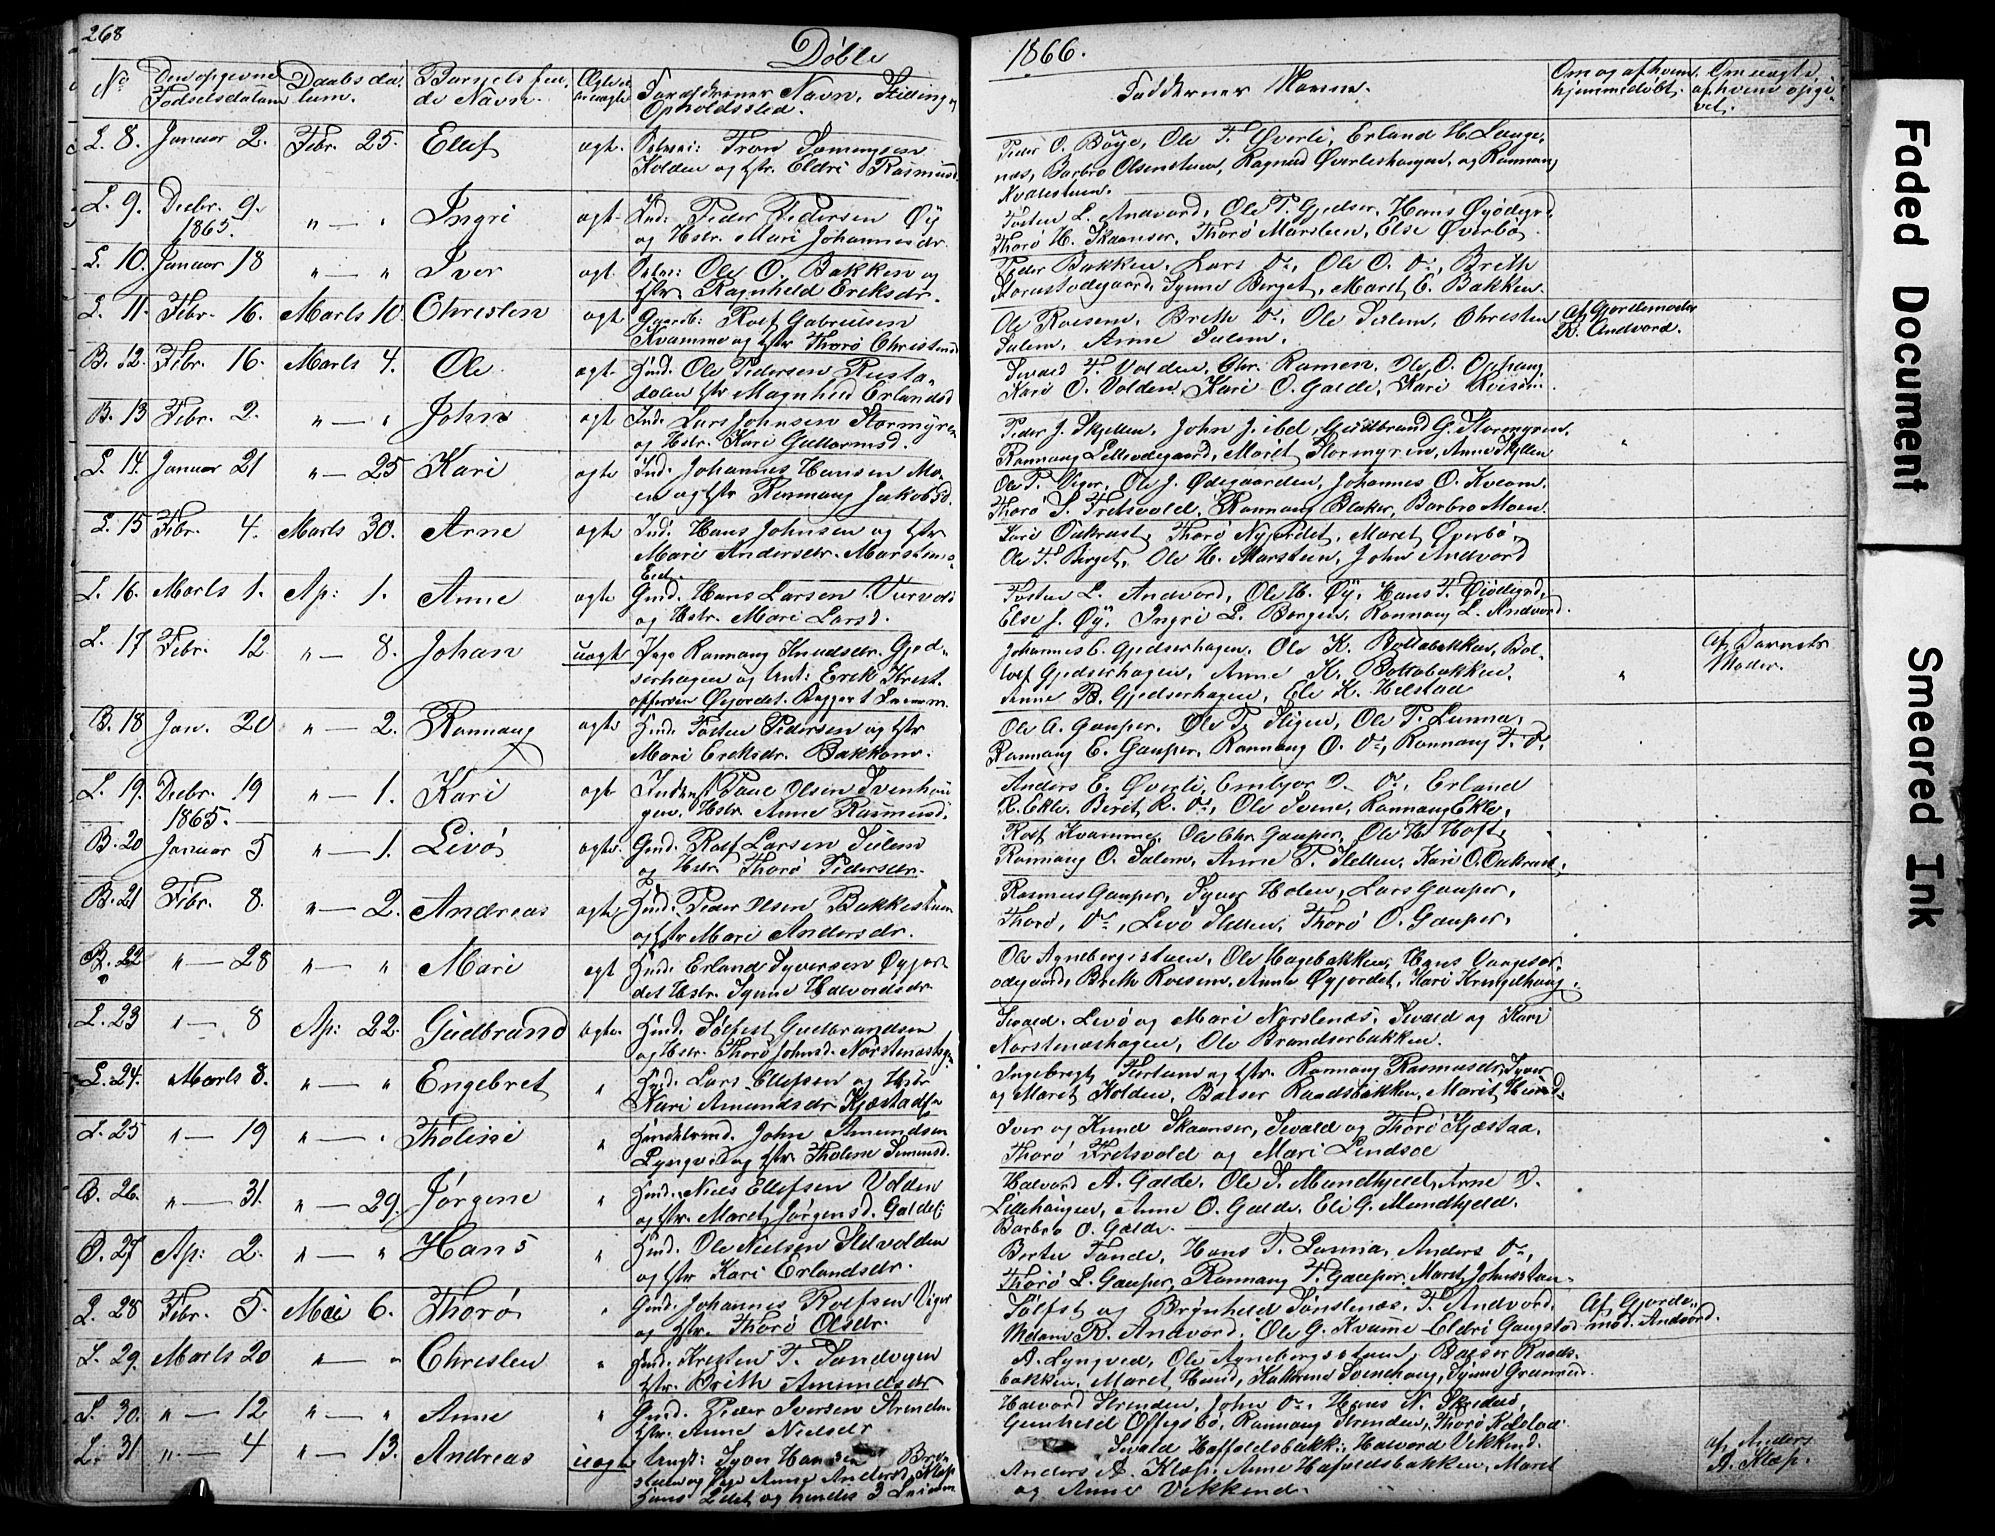 268
Døbte
1866.
No
Den opgivne Fødselsdatum
Daabsdatum.
Barnets fulde Navn.
Ægte ei. uægte
Forældrenes Navn, Stilling og Opholdssted.
Faddernes Navne.
Om og af hvem hjemmedøbt.
Om uægte af hvem opgivet.
L. 8. Januar 2. Febr. 25. Ellef ægte
Kolden og Hstr. Eldri Rasmusd.
Peder O. Bøye, Ole T. Øverli, Erland H. Lange,
næs, Barbro Olsenstuen, Ragnild Øverlishaugen, og Rannaug
Kvarestuen.
L. 9. Decbr. 9. 1865. " — " Ingri ægt Ind: Peder Pedersen Øy
og Hstr. Mari Johannesdr.
Tosten L. Andvord, Ole P. Gjedser, Hans Øyødegrd.
Thorø H. Skaanser, Thorø Marsteen, Else Øverbø.
L. 10. Januar 18 " — " Iver ægt Ole O. Bakken og
Hstr. Ragnhild Eriksdr.
Peder Bakken, Lars Do, Ole O. Do, Brith
Storestødegaard, Synne Berget, Maret E. Bakken.
L. 11. Febr. 16. Marts 10. Christen ægt Gaardb: Rolf Gabrielsen
Kvamme og Hstr Thorø Christensd
Ole Roesem, Brith Do, Ole Sulem, Christen
Sulem, Anne Sulem.
Af Gjordemoder
R. Andvord.
B. 12. Febr. 16. Marts 4. Ole ægt Hmd. Ole Pedersen Rusta-
dalen Hstr Magnhild Erlandsd
Sevald T. Volden, Chr. Ramen, Ole O. Ophaug,
Kari O. Volden, Kari O. Galde, Kari Roesem.
B. 13 Febr. 2. " — " John ægt Ind. Lars Johnsen Stormyren
og Hstr. Kari Guttormsd.
Peder J. Skjellen, John J. ibd, Gudbrand G. Stormyren,
Rannaug Lillevdegaard, Maret Stormyren, Anne Skjellen
L. 14. Januar 21 " — 25 Kari ægte Ind. Johannes Hansen Mo-
en og Hstr Rannaug Jakobsd.
Ole P. Viger, Ole J. Ødegaarden, Johannes O. Kleom,
Thorø S. Fretsvold, Rannaug Blaker, Barbro Moen.
L. 15 Febr. 4. Marts 30. Arne ægte Ind. Hans Johnsen og Hstr
Mari Andersdr. Marsteens-
Eie.
Thorø Nyjordet, Maret Øverbø,
Ole T. Berget, Ole H. Marsteen, John Andvord
L. 16. Marts 1. Ap: 1. Anne ægte Gmd. Hans Larsen
og Hstr. Mari Larsd.
Tosten L. Andvord, Ole H. Øy, Hans T. Øiødegrd,
Else J. Øy, Ingri L. Borgen, Rannaug L. Andvord.
L. 17 Febr. 12. " — 8. Johan uægte Pige Rannaug Knudsdr. Gjed-
serhagen og Unt: Erik Krist-
offersen Øyjordet. Begges 1 Leierm.
Johannes C. Gjedserhagen, Ole K. Bottabakken, Bol-
Gjedserhagen, Anne K. Bottabakken,
Anne B. Gjedserhagen, Ole K. Helstad
af Barnets
Moder.
B. 18 Jan. 20 " — 2. Rannaug ægte Hmd. Tosten Pedersen og Hstr
Mari Eriksdr. Bakkom.
Ole A. Gauper, Ole T. Stigen, Ole P. Lunna,
Rannaug E. Gauper, Rannaug O. Do, Rannaug T. Do.
L. 19. Decbr. 19 1865. " — 1. Kari ægt Inderst Paul Olsen Svenhau
gen, Hstr. Anne Rasmusd.
Anders E. Øverli, Embjør D. Do, Erland
R. Ekle, Berit R. Do, Ole Svene, Rannaug Ekle,
B. 20 Januar 5 " — 1. Livø ægte Gmd. Rolf Larsen Sulem
og Hstr Thorø Pedersdr.
Rolf Kvamme, Ole Chr. Gauper, Ole H. Hoft,
Rannaug O. Sulem, Anne P. Hellen, Kari O. Oukrust,
B. 21 Febr. 8. " — 2. Andreas ægte Hmd: Peder Olsen Bakkestuen
og Hstr Mari Andersdr.
Rasmus Gauper, Syver Holen, Lars Gauper,
Thorø, Do, Livø Hellen, Thorø O. Gauper,
B. 22 " — 28 " — " Mari ægt Hmd: Erland Syversen Øyjor-
det Hstr. Synne Halvordsdr.
Ole Agnebergstuen, Ole Hagebakken, Hans
ødegaard, Brith Roesem, Anne Øyjordet, Kari Kringelhaug,
L. 23 " — 8 Ap: 22. Gudbrand ægte. Hmd. Sølfest Gudbrandsen
og Hstr. Thorø Johnsd.
Sevald, Livø og Mari Norstenæs, Sevald og Kari
Norstenæshagen, Ole Brandserbakken.
L. 24. Marts 8. " — " Engebret " Hmd. Lars Ellefsen og Hstr
Kari Amundsdr.
Ingebregt og Hstr. Rannaug Rasmusdr, Syver
og Maret Kolden, Balser Raadsbakken, Marit Hund.
L. 25 " — 19 " — " Tholine " John Amundsen
Lyngved og Hstr. Tholine Simensd.
Iver og Knud Skaanser, Sevald og Thorø Kjæstaa,
Thorø Fretsvold og Mari Lindsøe
B. 26. " — 31. " — 29. Jørgine " Hmd. Niels Ellefsen Volden
og Hstr. Maret Jørgensd. Galdes.
Halvord A. Galde, Ole S. Mundhjeld, Arne D.
Lillehaugen, Anne O. Galde, Eli G. Mundhjeld.
Barbro O. Galde.
B. 27 Ap: 2. " — " Hans " Hmd. Ole Nielsen
og Hstr Kari Erlandsdr.
Berte Fonde, Hans P. Lunna, Anders Do,
Thorø L. Gauper, Rannaug T. Gauper, Maret Johnsstuen.
L. 28 Febr. 5. Mai 6. Thorø " Gmd. Johannes Rolfsen Viger
og Hstr. Thorø Olsdr.
Sølfest og Brønheld Sønstenæs, T. Andvord,
Madam R. Andvord, Ole G. Kvame Eldri Gaugstad
Af Gjorde-
mod. Andvord.
L. 29. Marts 20 " — " Christen " Hmd. Kristen T. Sandvigen
Hstr. Brith Amundsdr
A. Lyngved, Ole Agnebergsstuen, Balser Raads-
bakken, Maret Hund, Kathrine Svenehaug, Synne Granrud.
S. 30. " — 12 " — " Anne " Gmd. Peder Iversen Strenden
Hstr. Anne Nielsdr
Halvord Strenden, John Do, Hans N.
Gunhild Offigsbø, Rannaug Strenden, Thorø Kolstad.
L. 31 " — 4 " — 13. Andreas uægte Ungk: Syver Hansen
stuen og Pige Anne Andersd. Kløp
Hans 2det og hendes 3 Leierm
Sevald Haffoldsbakk: Halvord Vekkend.
Anders A. Kløp, Anne Hafoldsbakken, Maret
og Anne Vekkend.
af Anders
A. Kløp.
Faded Document
Smeared Ink